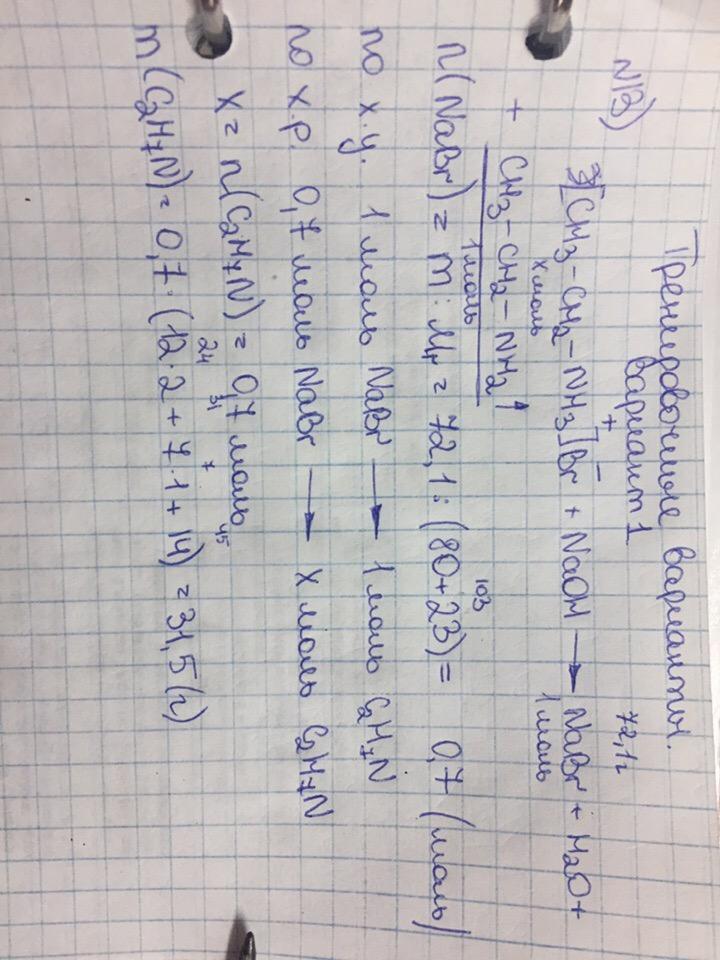 Тренировочные варианты.
Вариант 1
N13)
72,1г
[CH3-CH2-NH3]⁺Br⁻ + NaOH → NaBr + H2O+
x моль
1 моль
+ CH3-CH2-NH2↑
1 моль
n(NaBr) = m : Mr = 72,1 : (80+23) = 0,7 (моль)
103
по х.у. 1 моль NaBr → 1 моль C2H7N
по х.р. 0,7 моль NaBr → x моль C2H7N
X = n(C2H7N) = 0,7 моль
24 31 7 45
m(C2H7N) = 0,7·(12·2 + 7·1 + 14) = 31,5(г)